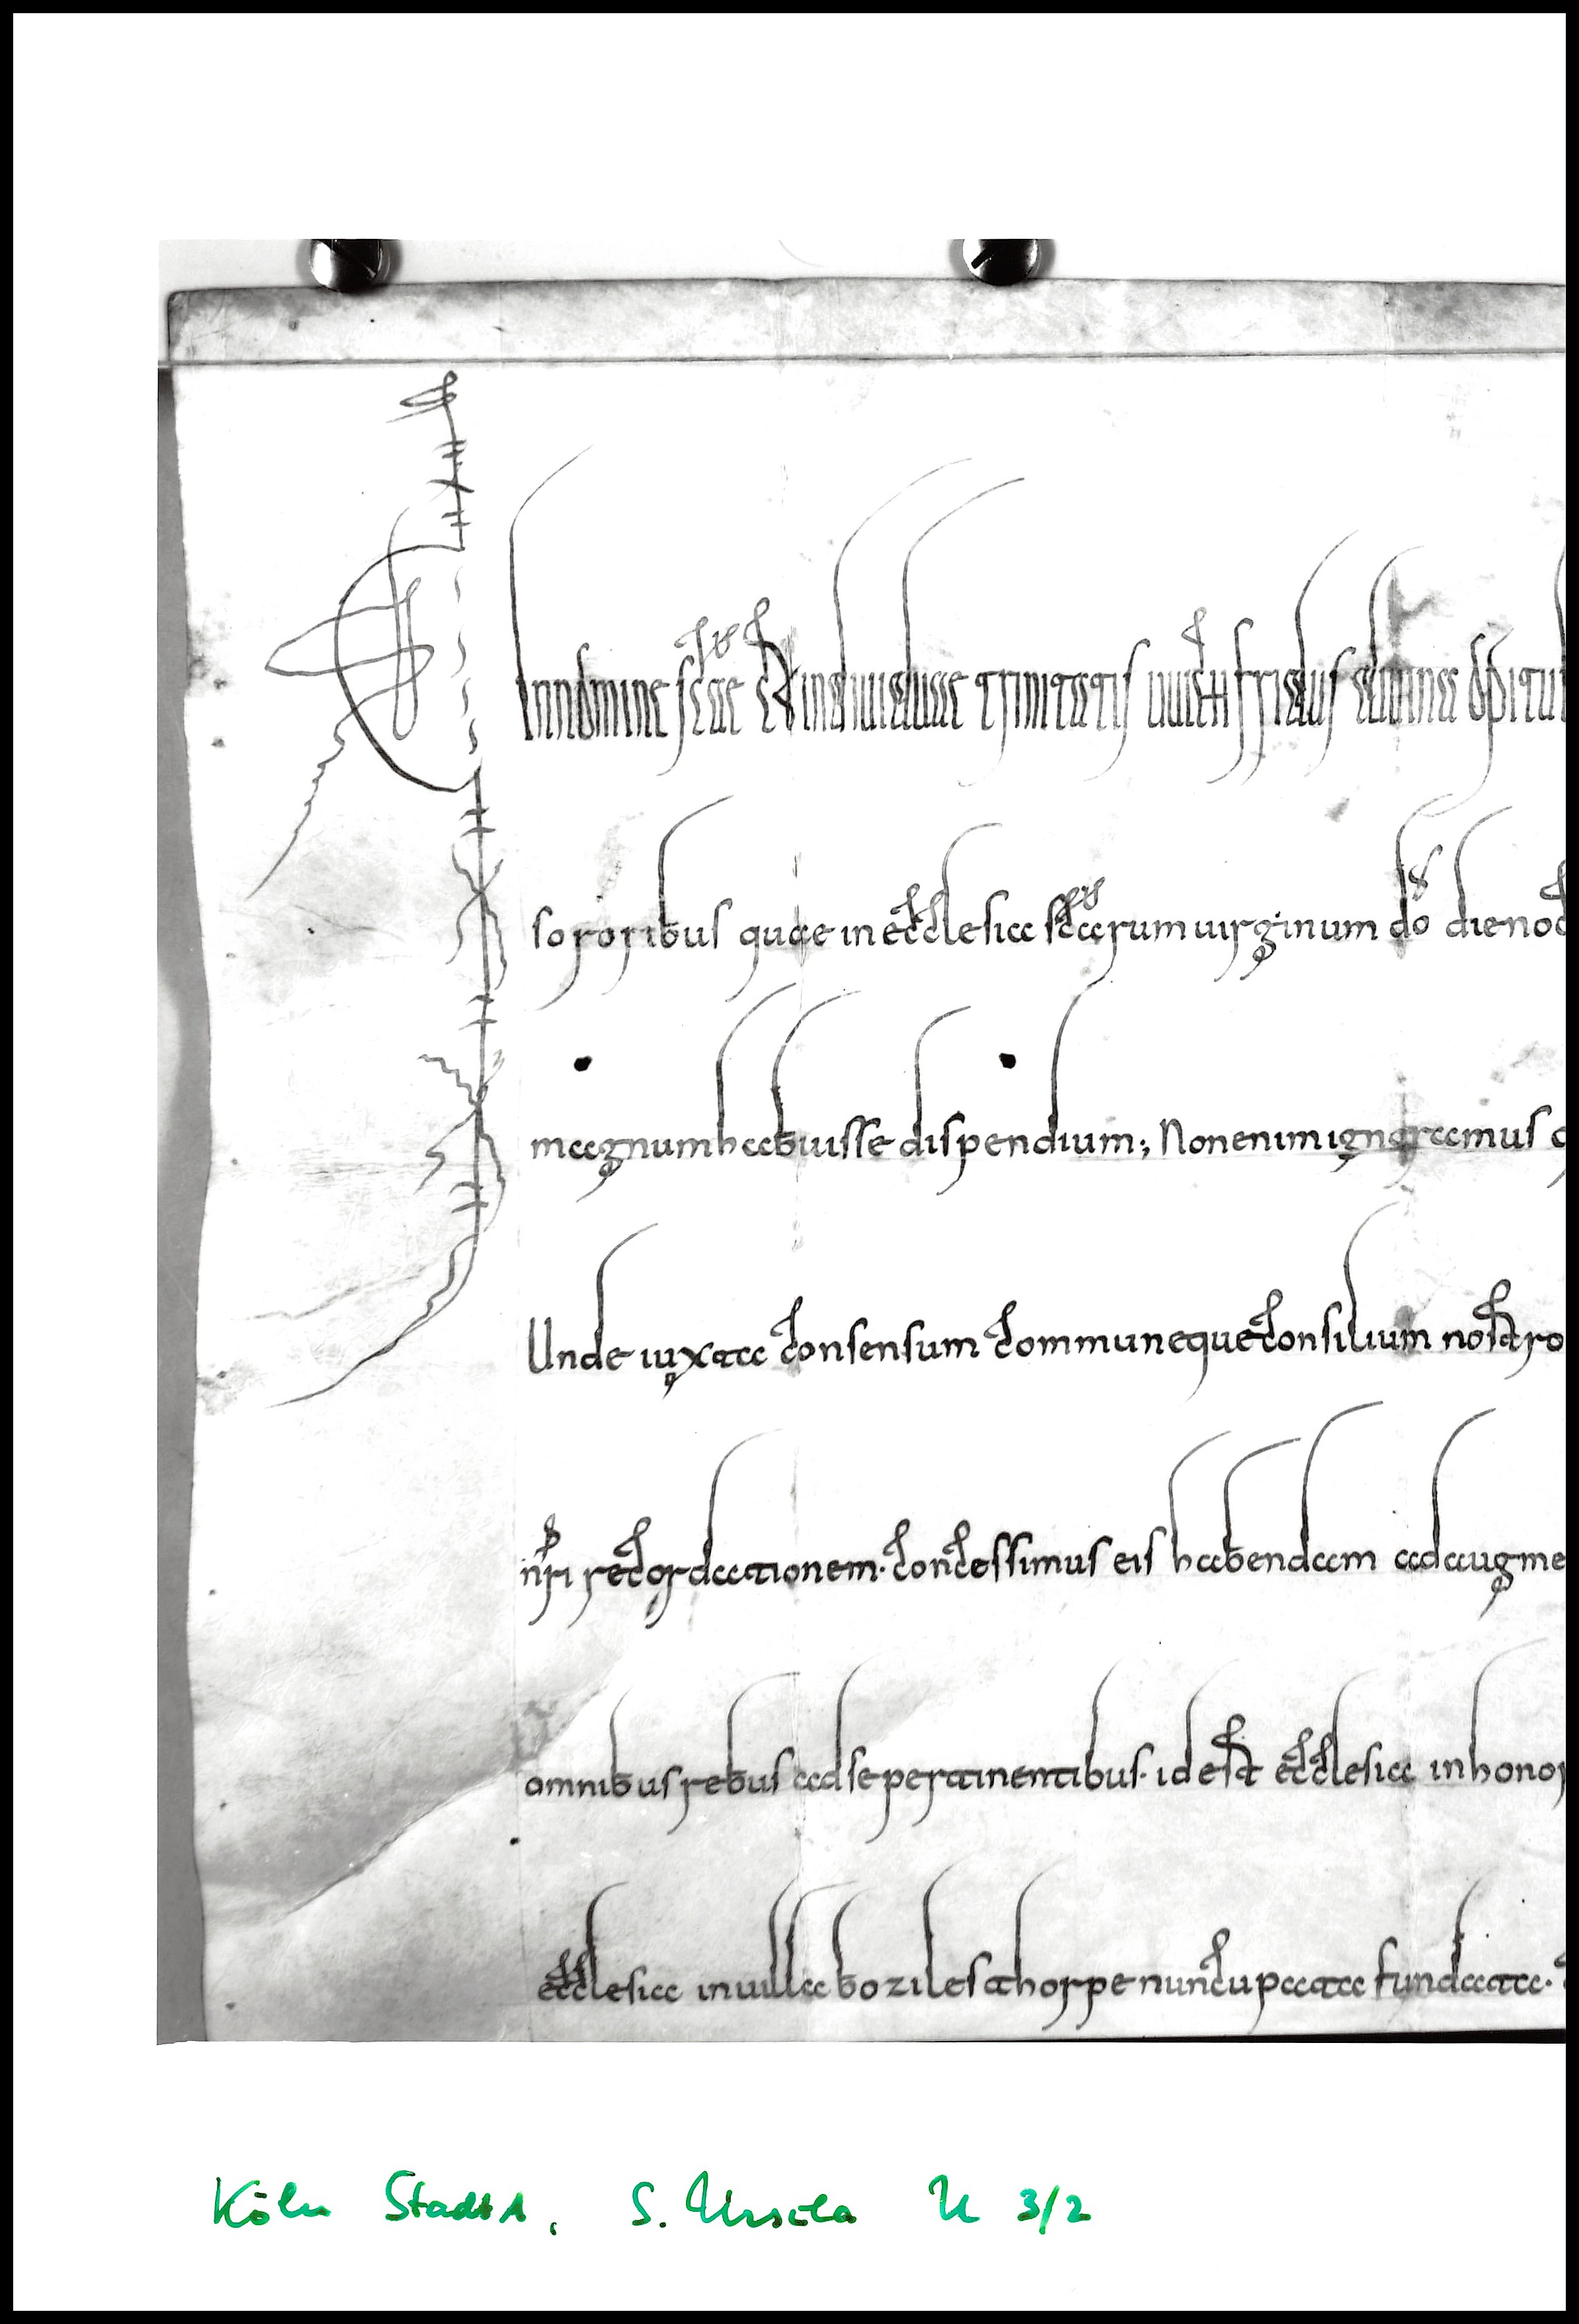 In nomine scae et indiuiduae trinitatis uuicfridus diuina opitu
sororibus quae in ecclesia scarum uirginum do die noc
magnum habuisse dispendium; Non enim ignoramus q
Unde iuxta consensum communeque consilium nostro
nri recordationem. concessimus eis habendam ad augme
omnibus rebus ad se pertinentibus. id est ecclesia in honor
ecclesia in uilla bozilesthorpe nuncupata fundata.
Köln StadtA, S. Ursula U 3/2